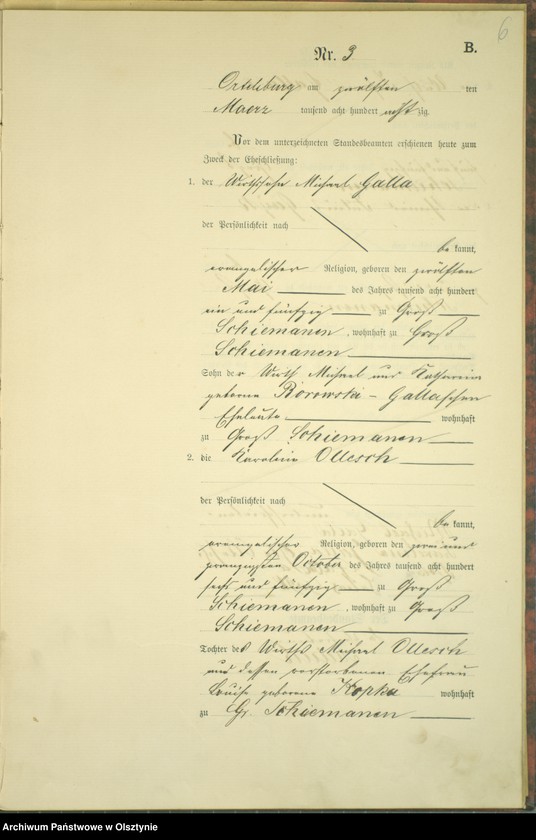 6
B.
Nr. 3
Ortelsburg am zwölften ten
Maerz tausend acht hundert achtzig.
Vor dem unterzeichneten Standesbeamten erschienen heute zum
Zweck der Eheschließung:
1. der Wirthssohn Michael Galla
der Persönlichkeit nach
be kannt,
evangelischer Religion, geboren den zwölften
Mai des Jahres tausend acht hundert
ein und fünfzig zu Groß
Schiemanen, wohnhaft zu Groß
Schiemanen
Sohn der Wirth Michael und Katharina
geborne Borowska - Gallaschen
Eheleute wohnhaft
zu Groß Schiemanen
2. die Karoline Ollesch
der Persönlichkeit nach
be kannt,
evangelischer Religion, geboren den zwei und
zwanzigsten October des Jahres tausend acht hundert
sechs und fünfzig zu Groß
Schiemanen, wohnhaft zu Groß
Schiemanen
Tochter des Wirths Michael Ollesch
und dessen verstorbenen Ehefrau
Louise geborene Kopka wohnhaft
zu Gr. Schiemanen
Archiwum Państwowe w Olsztynie